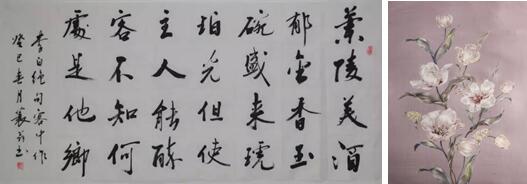 蘭陵美酒
郁金香玉
碗盛来琥
珀光但使
主人能醉
客不知何
處是他鄉
李白绝句客中作
癸巳春月书